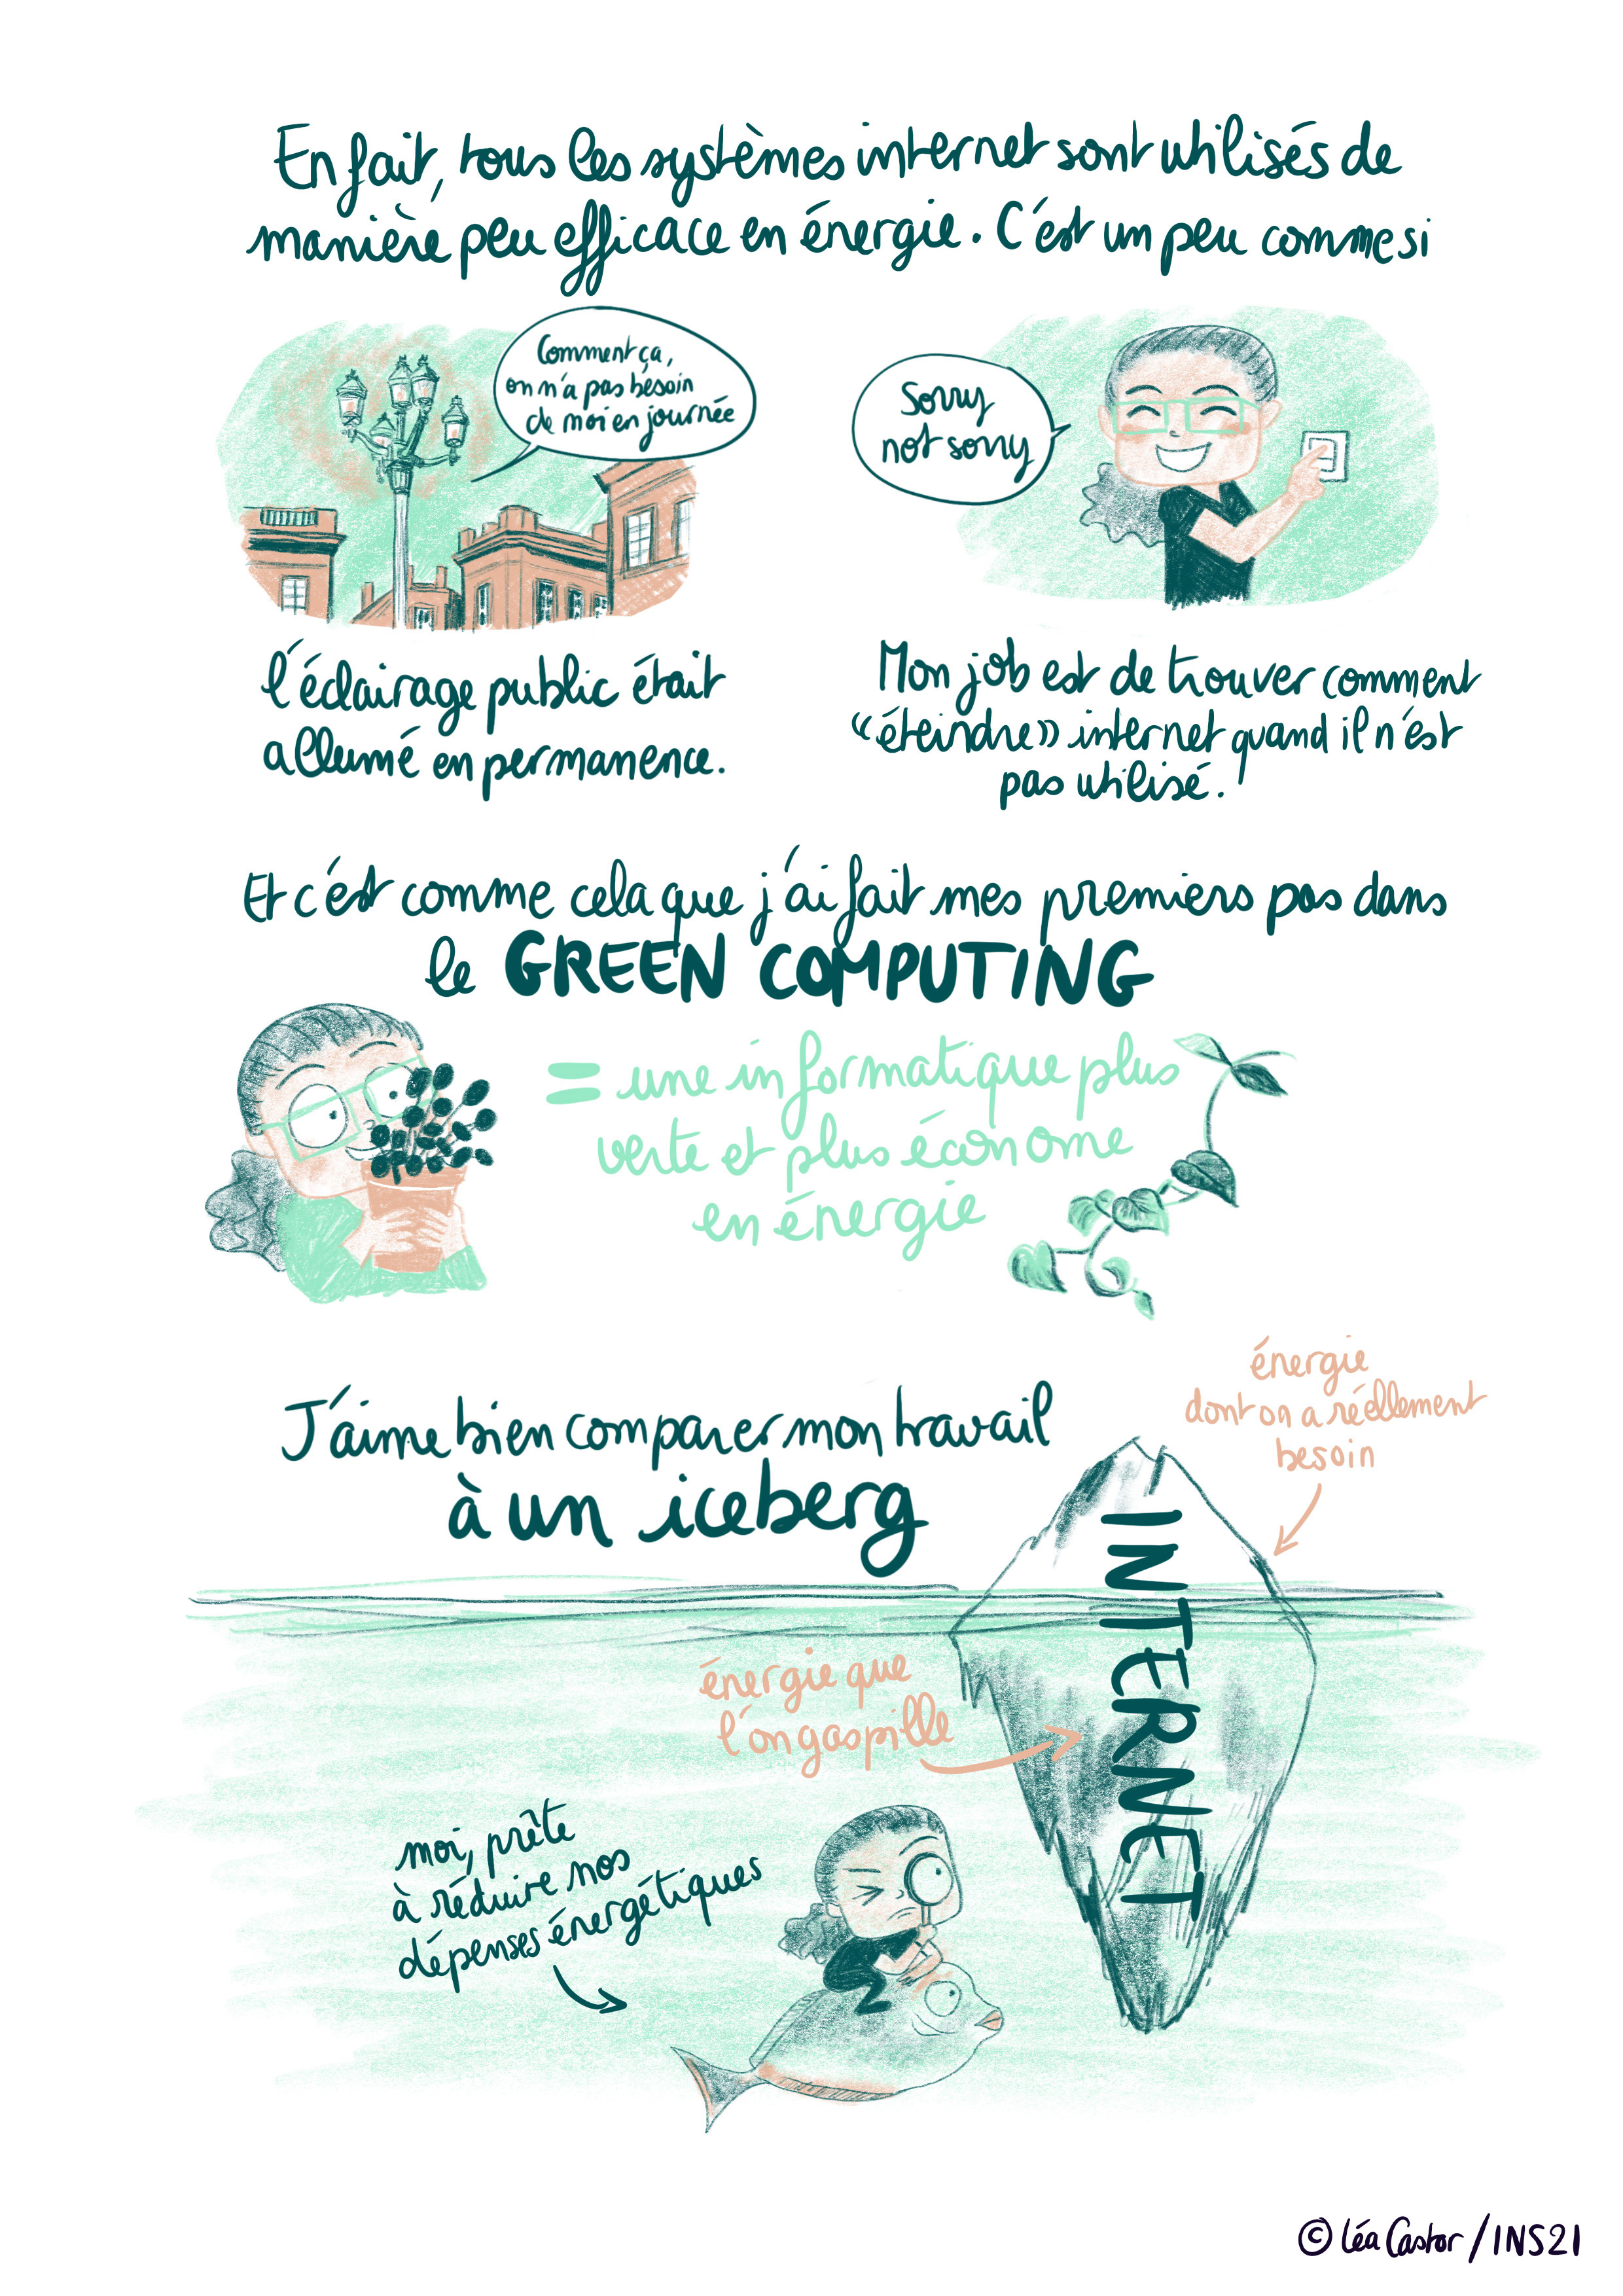 En fait, tous les systèmes internet sont utilisés de
manière peu efficace en énergie. C'est un peu comme si
Comment ça,
on n'a pas besoin
de moi en journée
Sorry
not sorry
l'éclairage public était
allumé en permanence.
Mon job est de trouver comment
"éteindre" internet quand il n'est
pas utilisé.
Et c'est comme cela que j'ai fait mes premiers pas dans
le GREEN COMPUTING
= une informatique plus
verte et plus économe
en énergie
J'aime bien comparer mon travail
à un iceberg
énergie
dont on a réellement
besoin
INTERNET
énergie que
l'on gaspille
moi, prête
à réduire nos
dépenses énergétiques
© Léa Castor / INS2I